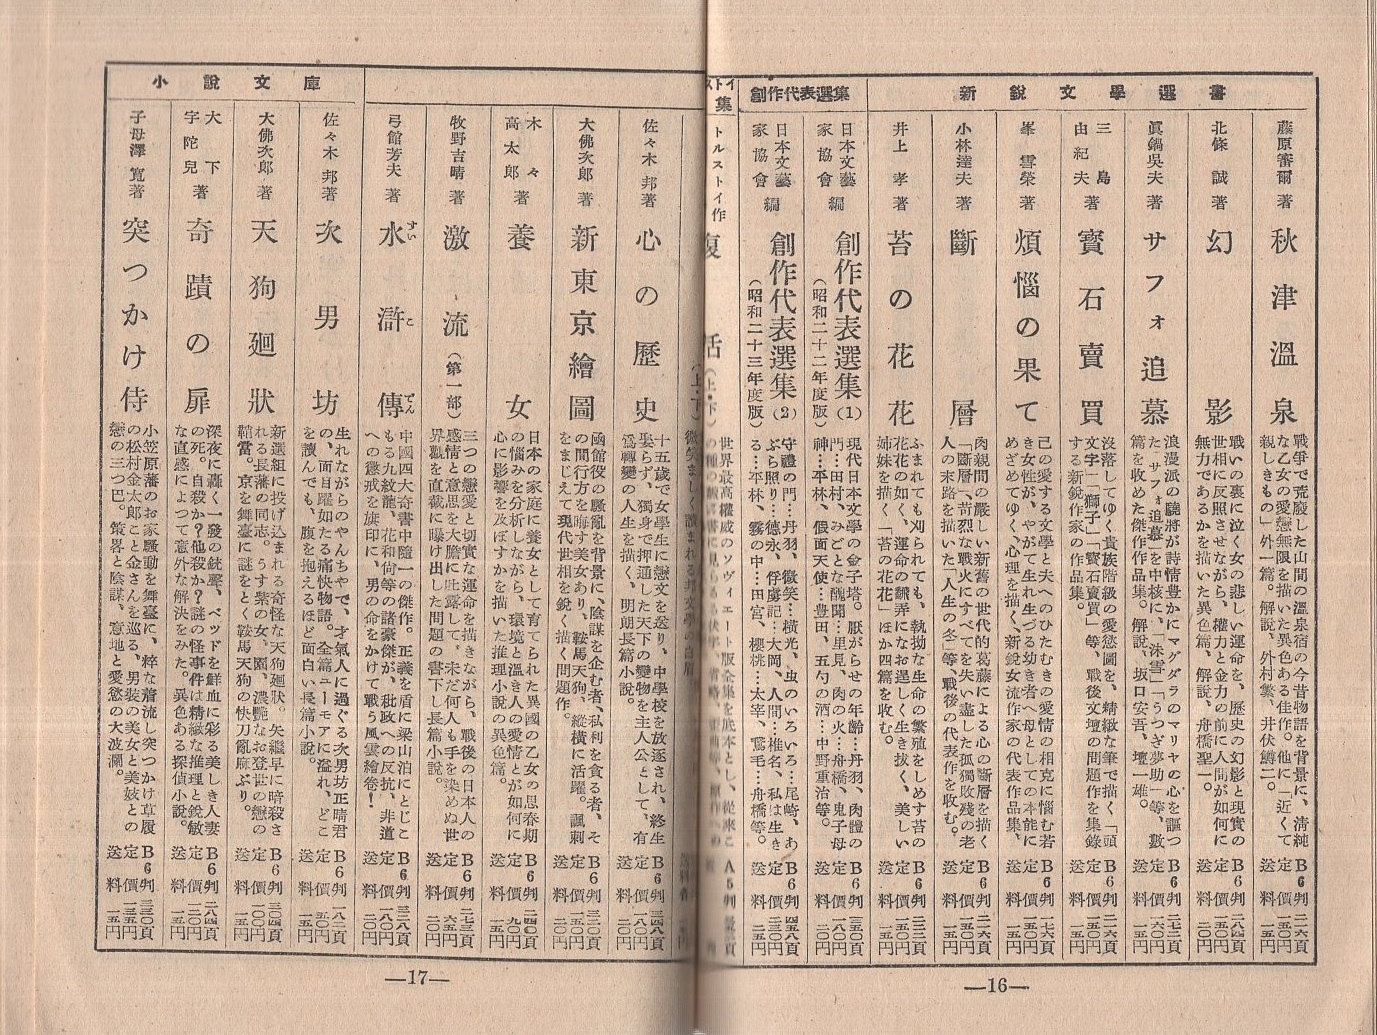 新銳文學選書
藤原審爾著
秋津溫泉
戰爭で荒廢した山間の溫泉宿の今昔物語を背景に、清純
な乙女の愛戀無限を描いた異色ある佳作。他に「近くて
親しきもの」外一篇。解說、外村繁、井伏鱒二。
B6判 二二六頁
定價 一五〇円
送料 一五円
北條誠著
幻影
戰いの裏に泣く女の悲しい運命を、歷史の幻影と現實の
世相に反照させながら、權力と金力の前に人間が如何に
無力であるかを描いた異色篇、解說、舟橋聖一。
B6判 二八四頁
送料 一五円
眞鍋吳夫著
サフォ追慕
浪漫派の驍將が詩情豊かにマグダラのマリヤの心を謳つ
た「サフォ追慕」を中核に、「泳雪」「うつぎ夢助」等、數
篇を收めた傑作作品集。解說、坂口安吾、壇一雄。
B6判 二七二頁
定價 一六〇円
送料 一五円
三島由紀夫著
寶石賣買
沒落してゆく貴族階級の愛慾圖を、精緻な筆で描く「頭
文字」「獅子」「寶石賣買」等、戰後文壇の問題作を集錄
する新銳作家の作品集。
B6判 二二六頁
定價 一五〇円
送料 一五円
峯雪榮著
煩惱の果て
己の愛する文學と夫へのひたむきの愛情の相克に惱む若
き女性が、やがて生れ生づる幼き者へ母としての本能に
めざめてゆく、心理を描く、新銳女流作家の代表作品集、
B6判 一七六頁
送料 一五円
小林達夫著
斷層
肉親間の嚴しい新舊の世代的葛藤による心の斷層を描く
「斷層」、苛烈な戰火にすべてを失い盡した孤獨敗殘の老
人の末路を描いた「人生の冬」等、戰後の代表作を收む。
B6判 二二六頁
定價 一五〇円
送料 一五円
井上孝著
苔の花花
ふまれても刈られても、執拗な生命の繁殖をしめす苔の
花花の如く、運命の飜弄になお逞しく生き拔く、美しい
姉妹を描く「苔の花花」ほか四篇を收む。
B6判 二三二頁
定價 一五〇円
送料 一五円
創作代表選集
日本文藝家協會編
創作代表選集(1)
(昭和二十二年度版)
現代日本文學の金子塔。厭がらせの年齡…丹羽、肉體の
門…田村、みごとな醜聞…里見、肉の火…舟橋、鬼子母
神…平林、假面天使…豊田、五勺の酒…中野重治等。
B6判 三五〇頁
定價 一八〇円
送料 二〇円
日本文藝家協會編
創作代表選集(2)
(昭和二十三年度版)
守禮の門…丹羽、微笑…橫光、虫のいろいろ…尾崎、あ
ぶら照り…德永、俘虜記…大岡、人間…椎名、私は生き
る…平林、霧の中…田宮、櫻桃…太宰、鵞毛…舟橋等。
B6判 四五八頁
定價 二三〇円
送料 二五円
トルストイ作
復活(上・下)
世界最高權威のソヴィエート版全集を底本とし、從來こ
A5判
—16—
佐々木邦著
心の歷史
十五歲で女學生に戀文を送り、中學校を放逐され、終生
娶らず、獨身で押通した天下の變物を主人公として、有
爲轉變の人生を描く、明朗長篇小說。
B6判 三四八頁
定價 一八〇円
送料 二〇円
大佛次郎著
新東京繪圖
函館役の騷亂を背景に、陰謀を企む者、私利を貪る者、そ
の間行方を晦す美女あり、鞍馬天狗、縱橫に活躍。諷刺
をまじえて現代世相を銳く描く問題作。
B6判 三二〇頁
送料 二〇円
木々高太郎著
養女
日本の家庭に養女として育てられた異國の乙女の思春期
の惱みを分析しながら、環境と溫き人の愛情とが如何に
心に影響を及ぼすかを描いた推理小說の異色篇。
B6判 二四〇頁
定價 九〇円
送料 一五円
牧野吉晴著
激流(第一部)
三つの戀愛と切實な運命を描きながら、戰後の日本人の
感情と意思を大膽に吐露して、未だ何人も手を染めぬ世
界觀を直截に曝け出した問題の書下し長篇小說。
B6判 二七二頁
定價 一六五円
送料 一五円
弓館芳夫著
水滸傳
すいこでん
中國四大奇書中隨一の傑作。正義を盾に梁山泊にとじこ
もる九紋龍、花和尙等の諸豪傑が、秕政への反抗、非道
への懲戒を旗印に、男の命をかけて戰う風雲繪卷！
B6判 三二八頁
定價 一八〇円
送料 二〇円
小說文庫
佐々木邦著
次男坊
生れながらのやんちやで、才氣人に過ぐる次男坊正晴君
の、面目躍如たる痛快物語。全篇ユーモアに溢れ、どこ
を讀んでも、腹を抱えるほど面白い長篇小說。
B6判 一八二頁
定價 五〇円
送料 一五円
大佛次郎著
天狗廻狀
新選組に投げ込まれる奇怪な天狗廻狀。矢繼早に暗殺さ
れる長藩の同志。うす紫の女、園、濃艶なお登世の戀の
鞘當。京を舞臺に謎をとく鞍馬天狗の快刀亂麻ぶり。
B6判 三〇四頁
定價 一〇〇円
送料 一五円
大下宇陀兒著
奇蹟の扉
深夜に轟く一發の銃聲、ベッドを鮮血に彩る美しき人妻
の死。自殺か？他殺か？謎の怪事件は精緻な推理と銳敏
な直感によつて意外な解決をみた。異色ある探偵小說。
B6判 二八四頁
定價 一三五円
送料 一五円
子母澤寬著
突つかけ侍
小笠原藩のお家騷動を舞臺に、粹な着流し突つかけ草履
の松村金太郎ことお金さんを巡る、男裝の美女と美妓との
戀の三つ巴。策畧と陰謀、意地と愛慾の大波瀾。
B6判 三三〇頁
定價 一三五円
送料 一五円
—17—